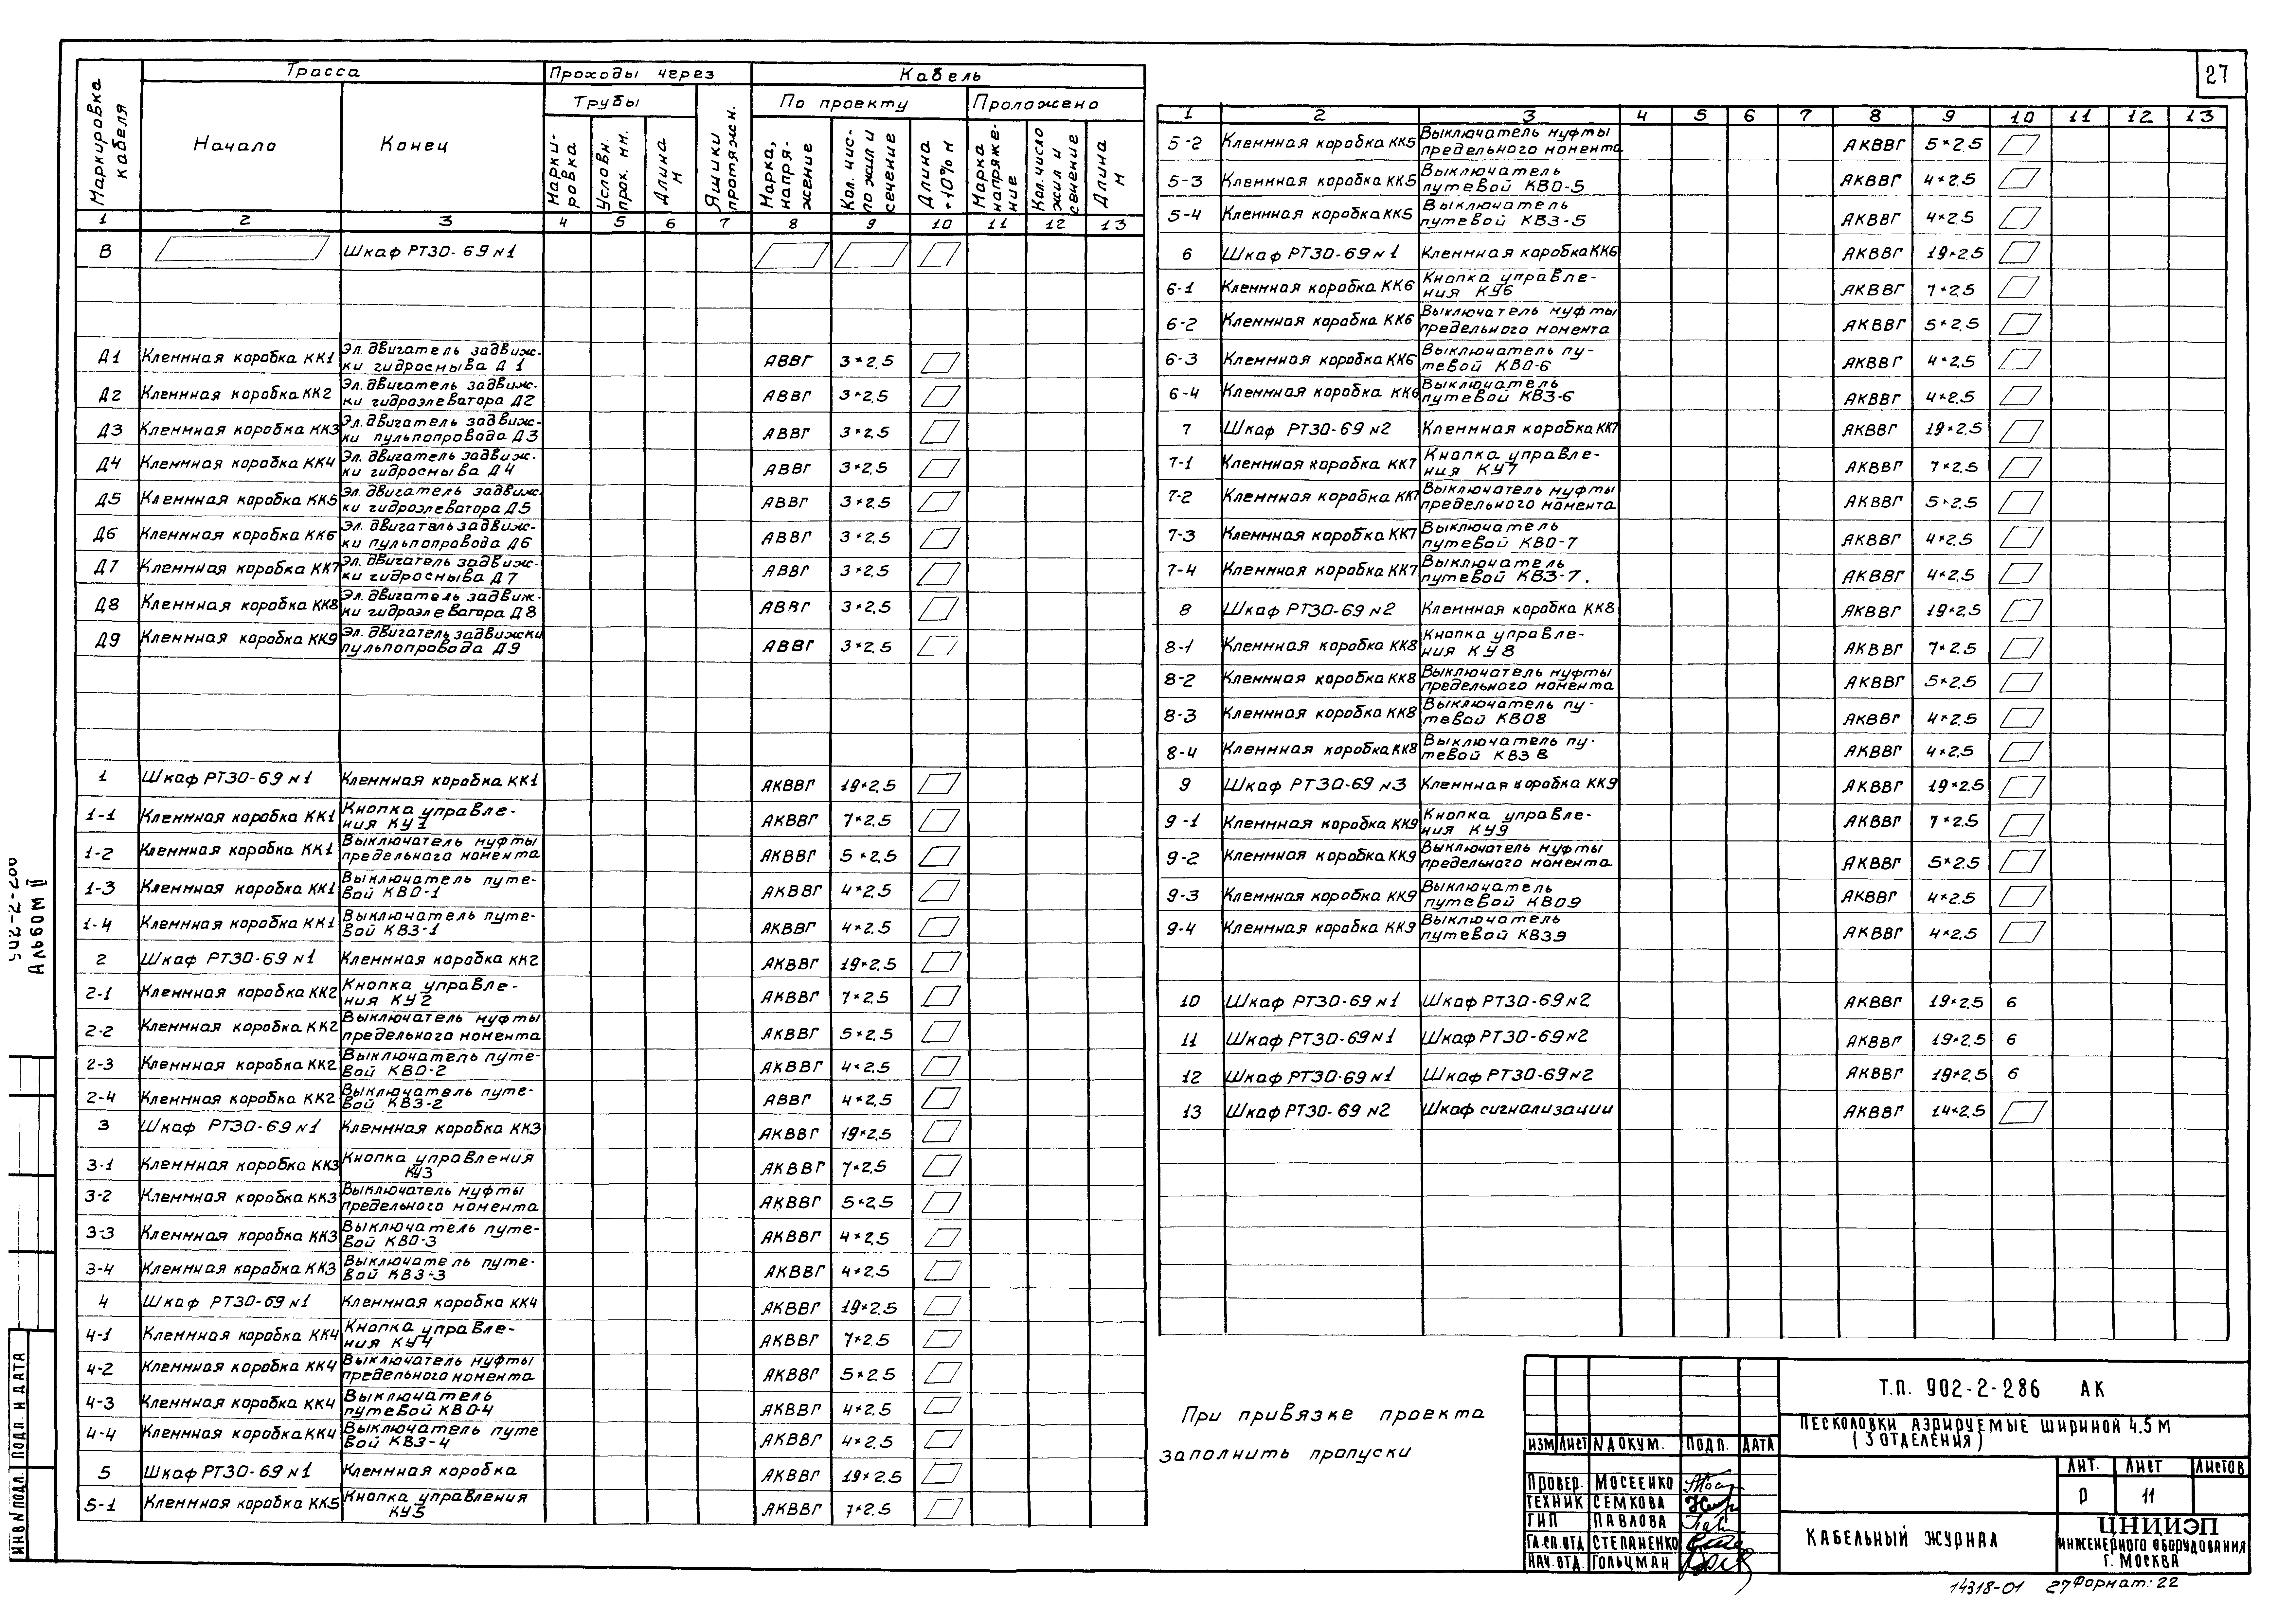 27
Маркировка кабеля
Трасса
Проходы через
Кабель
Начало
Конец
Трубы
Ящики протяжн.
По проекту
Проложено
Марки-
ровка
Условн.
прох. мм.
Длина
м
Марка,
напря-
жение
Кол. чис-
ло жил и
сечение
Длина
+10% м
Марка
напряже-
ние
Кол. число
жил и
сечение
Длина
м
1 2 3 4 5 6 7 8 9 10 11 12 13
В Шкаф РТ30-69 №1
Д1 Клеммная коробка КК1 Эл. двигатель задвиж-
ки гидросмыва Д 1 АВВГ 3*2,5
Д2 Клеммная коробка КК2 Эл. двигатель задвиж-
ки гидроэлеватора Д2 АВВГ 3*2,5
Д3 Клеммная коробка КК3 Эл. двигатель задвиж-
ки пульпопровода Д3 АВВГ 3*2,5
Д4 Клеммная коробка КК4 Эл. двигатель задвиж-
ки гидросмыва Д4 АВВГ 3*2,5
Д5 Клеммная коробка КК5 Эл. двигатель задвиж-
ки гидроэлеватора Д5 АВВГ 3*2,5
Д6 Клеммная коробка КК6 Эл. двигатель задвиж-
ки пульпопровода Д6 АВВГ 3*2,5
Д7 Клеммная коробка КК7 Эл. двигатель задвиж-
ки гидросмыва Д7 АВВГ 3*2,5
Д8 Клеммная коробка КК8 Эл. двигатель задвиж-
ки гидроэлеватора Д8 АВВГ 3*2,5
Д9 Клеммная коробка КК9 Эл. двигатель задвижки
пульпопровода Д9 АВВГ 3*2,5
1 Шкаф РТ30-69 №1 Клеммная коробка КК1 АКВВГ 19*2,5
1-1 Клеммная коробка КК1 Кнопка управле-
ния КУ1 АКВВГ 7*2,5
1-2 Клеммная коробка КК1 Выключатель муфты
предельного момента АКВВГ 5*2,5
1-3 Клеммная коробка КК1 Выключатель путе-
вой КВО-1 АКВВГ 4*2,5
1-4 Клеммная коробка КК1 Выключатель путе-
вой КВЗ-1 АКВВГ 4*2,5
2 Шкаф РТ30-69 №1 Клеммная коробка КК2 АКВВГ 19*2,5
2-1 Клеммная коробка КК2 Кнопка управле-
ния КУ2 АКВВГ 7*2,5
2-2 Клеммная коробка КК2 Выключатель муфты
предельного момента АКВВГ 5*2,5
2-3 Клеммная коробка КК2 Выключатель путе-
вой КВО-2 АКВВГ 4*2,5
2-4 Клеммная коробка КК2 Выключатель путе-
вой КВЗ-2 АВВГ 4*2,5
3 Шкаф РТ30-69 №1 Клеммная коробка КК3 АКВВГ 19*2,5
3-1 Клеммная коробка КК3 Кнопка управления
КУ3 АКВВГ 7*2,5
3-2 Клеммная коробка КК3 Выключатель муфты
предельного момента АКВВГ 5*2,5
3-3 Клеммная коробка КК3 Выключатель путе-
вой КВО-3 АКВВГ 4*2,5
3-4 Клеммная коробка КК3 Выключатель путе-
вой КВЗ-3 АКВВГ 4*2,5
4 Шкаф РТ30-69 №1 Клеммная коробка КК4 АКВВГ 19*2,5
4-1 Клеммная коробка КК4 Кнопка управле-
ния КУ4 АКВВГ 7*2,5
4-2 Клеммная коробка КК4 Выключатель муфты
предельного момента АКВВГ 5*2,5
4-3 Клеммная коробка КК4 Выключатель
путевой КВО-4 АКВВГ 4*2,5
4-4 Клеммная коробка КК4 Выключатель путе
вой КВЗ-4 АКВВГ 4*2,5
5 Шкаф РТ30-69 №1 Клеммная коробка АКВВГ 19*2,5
5-1 Клеммная коробка КК5 Кнопка управления
КУ5 АКВВГ 7*2,5
1 2 3 4 5 6 7 8 9 10 11 12 13
5-2 Клеммная коробка КК5 Выключатель муфты
предельного момента АКВВГ 5*2,5
5-3 Клеммная коробка КК5 Выключатель
путевой КВО-5 АКВВГ 4*2,5
5-4 Клеммная коробка КК5 Выключатель
путевой КВЗ-5 АКВВГ 4*2,5
6 Шкаф РТ30-69 №1 Клеммная коробка КК6 АКВВГ 19*2,5
6-1 Клеммная коробка КК6 Кнопка управле-
ния КУ6 АКВВГ 7*2,5
6-2 Клеммная коробка КК6 Выключатель муфты
предельного момента АКВВГ 5*2,5
6-3 Клеммная коробка КК6 Выключатель пу-
тевой КВО-6 АКВВГ 4*2,5
6-4 Клеммная коробка КК6 Выключатель
путевой КВЗ-6 АКВВГ 4*2,5
7 Шкаф РТ30-69 №2 Клеммная коробка КК7 АКВВГ 19*2,5
7-1 Клеммная коробка КК7 Кнопка управле-
ния КУ7 АКВВГ 7*2,5
7-2 Клеммная коробка КК7 Выключатель муфты
предельного момента АКВВГ 5*2,5
7-3 Клеммная коробка КК7 Выключатель
путевой КВО-7 АКВВГ 4*2,5
7-4 Клеммная коробка КК7 Выключатель
путевой КВЗ-7. АКВВГ 4*2,5
8 Шкаф РТ30-69 №2 Клеммная коробка КК8 АКВВГ 19*2,5
8-1 Клеммная коробка КК8 Кнопка управле-
ния КУ8 АКВВГ 7*2,5
8-2 Клеммная коробка КК8 Выключатель муфты
предельного момента АКВВГ 5*2,5
8-3 Клеммная коробка КК8 Выключатель пу-
тевой КВО8 АКВВГ 4*2,5
8-4 Клеммная коробка КК8 Выключатель пу-
тевой КВЗ 8 АКВВГ 4*2,5
9 Шкаф РТ30-69 №3 Клеммная коробка КК9 АКВВГ 19*2,5
9-1 Клеммная коробка КК9 Кнопка управле-
ния КУ9 АКВВГ 7*2,5
9-2 Клеммная коробка КК9 Выключатель муфты
предельного момента АКВВГ 5*2,5
9-3 Клеммная коробка КК9 Выключатель
путевой КВО9 АКВВГ 4*2,5
9-4 Клеммная коробка КК9 Выключатель
путевой КВЗ9 АКВВГ 4*2,5
10 Шкаф РТ30-69 №1 Шкаф РТ30-69 №2 АКВВГ 19*2,5 6
11 Шкаф РТ30-69 №1 Шкаф РТ30-69 №2 АКВВГ 19*2,5 6
12 Шкаф РТ30-69 №1 Шкаф РТ30-69 №2 АКВВГ 19*2,5 6
13 Шкаф РТ30-69 №2 Шкаф сигнализации АКВВГ 14*2,5
При привязке проекта
заполнить пропуски
Альбом II
ИНВ.№ ПОДЛ. ПОДП. И ДАТА
ИЗМ ЛИСТ №ДОКУМ. ПОДП. ДАТА
ПРОВЕР. МОСЕЕНКО
ТЕХНИК СЕМКОВА
ГИП ПАВЛОВА
ГЛ.СП.ОТД СТЕПАНЕНКО
НАЧ.ОТД. ГОЛЬЦМАН
Т.П. 902-2-286 АК
ПЕСКОЛОВКИ АЭРИРУЕМЫЕ ШИРИНОЙ 4.5 М
(3 ОТДЕЛЕНИЯ)
ЛИТ. ЛИСТ ЛИСТОВ
Р 11
КАБЕЛЬНЫЙ ЖУРНАЛ
ЦНИИЭП
ИНЖЕНЕРНОГО ОБОРУДОВАНИЯ
Г. МОСКВА
14318-01 27 Формат: 22